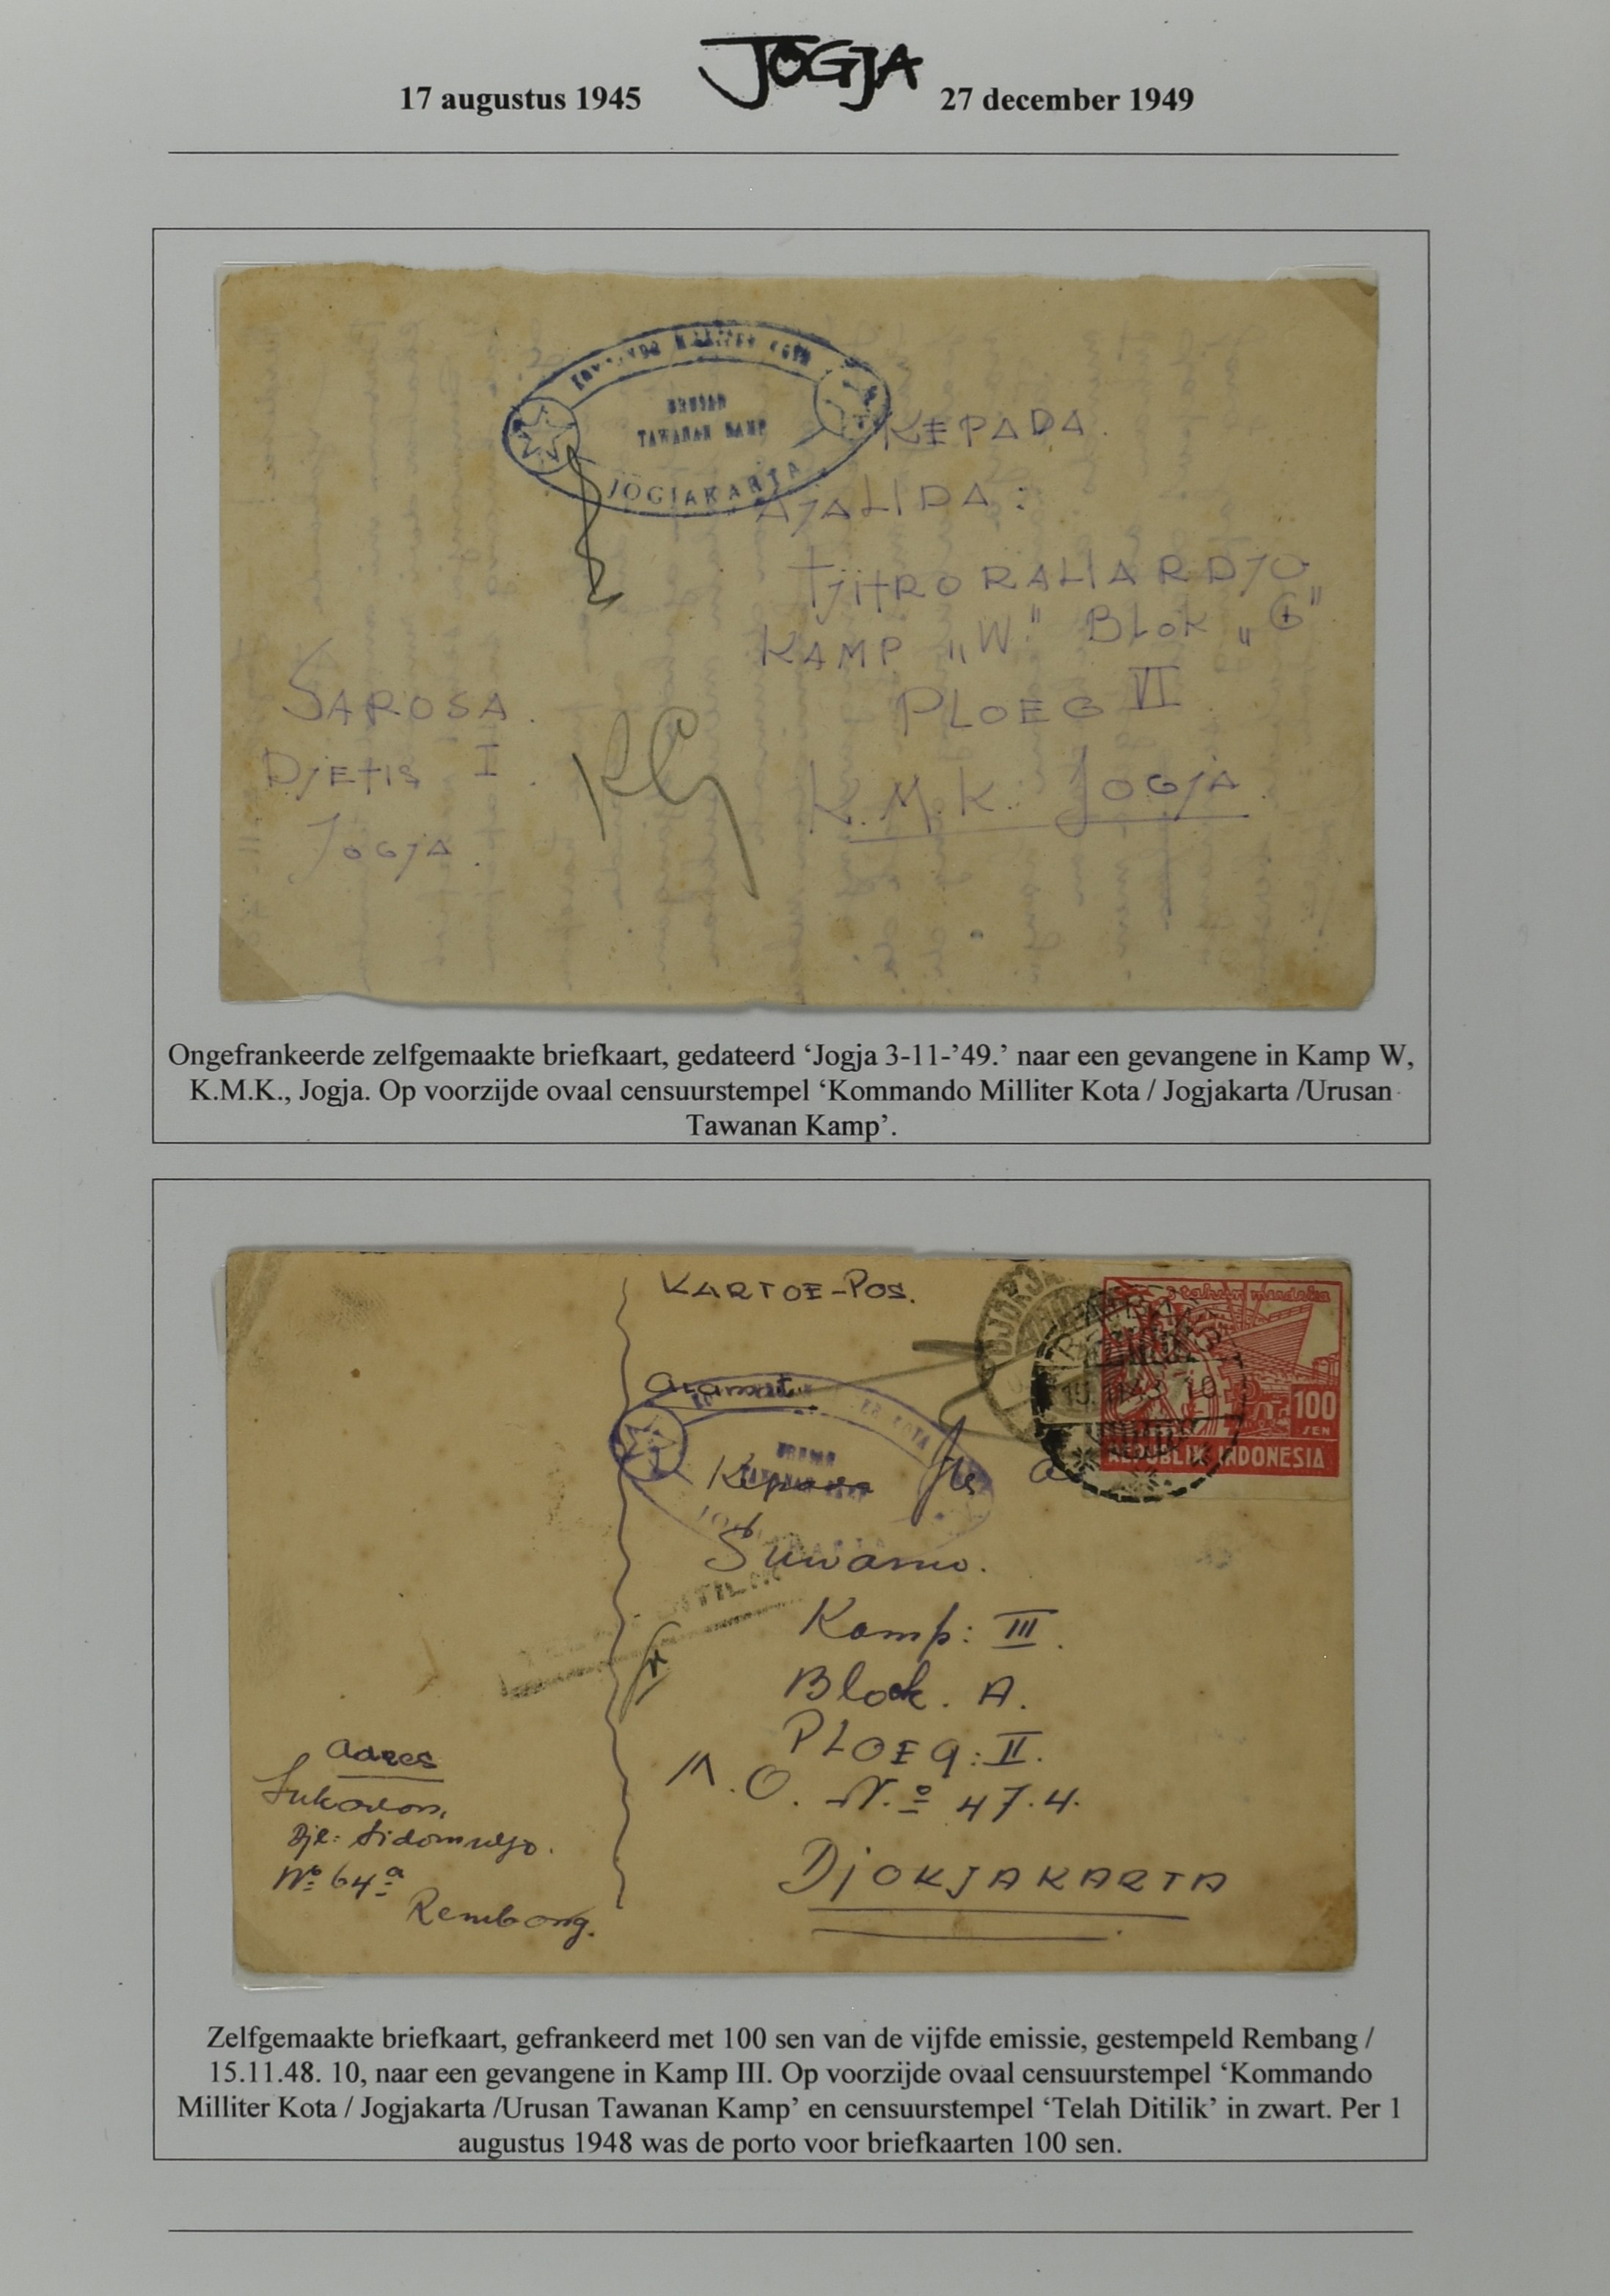 JOGJA
17 augustus 1945 27 december 1949
KOMMANDO MILLITER KOTA
URUSAN
TAWANAN KAMP
JOGJAKARTA
KEPADA.
AJALIDA:
TJITRORALIARDJO
KAMP „W." BLOK „G"
PLOEG VI
K.M.K. JOGJA.
SAROSA.
DJETIS I.
JOGJA.
KG
Ongefrankeerde zelfgemaakte briefkaart, gedateerd ‘Jogja 3-11-’49.’ naar een gevangene in Kamp W,
K.M.K., Jogja. Op voorzijde ovaal censuurstempel ‘Kommando Milliter Kota / Jogjakarta /Urusan
Tawanan Kamp’.
KARTOE-POS.
3 tahun merdeka
100
SEN
REPUBLIK INDONESIA
Alamat
URUSAN
TAWANAN KAMP
JOGJAKARTA
Kepada
Suwarno.
Kamp: III.
Blok. A.
PLOEG: II.
No 47.4.
DJOKJAKARTA
Adres
Sukaton,
Djl: Sidomuljo.
No 64a
Rembang.
Zelfgemaakte briefkaart, gefrankeerd met 100 sen van de vijfde emissie, gestempeld Rembang /
15.11.48. 10, naar een gevangene in Kamp III. Op voorzijde ovaal censuurstempel ‘Kommando
Milliter Kota / Jogjakarta /Urusan Tawanan Kamp’ en censuurstempel ‘Telah Ditilik’ in zwart. Per 1
augustus 1948 was de porto voor briefkaarten 100 sen.